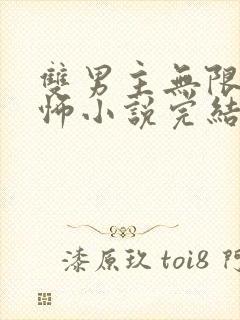 雙男主無限
怖小說完結
漆原玖 toi8 阿